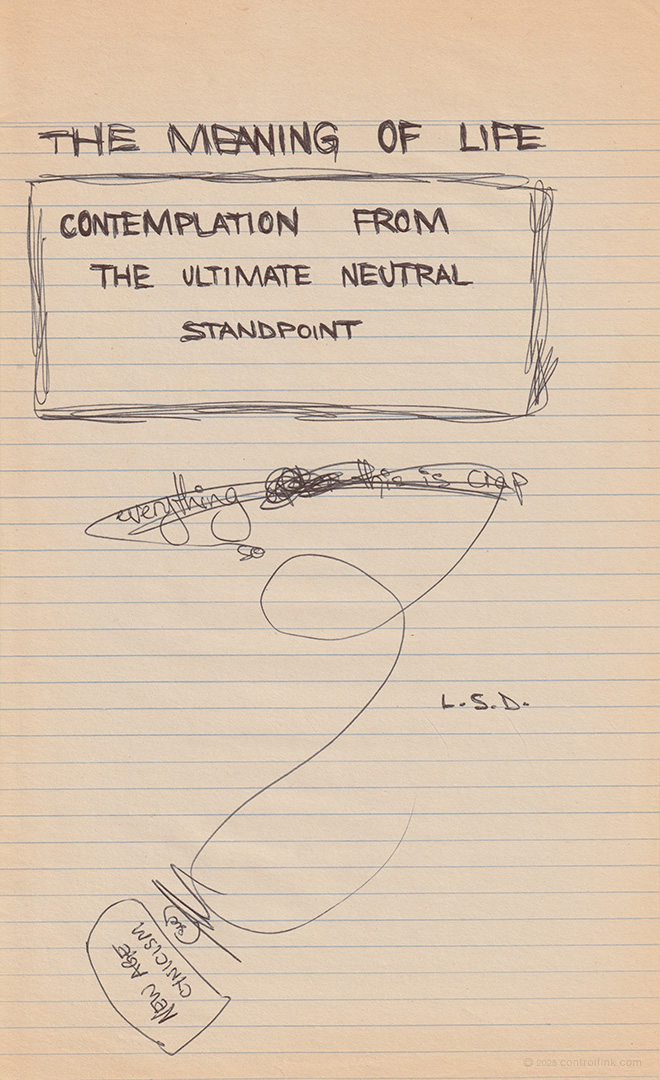 THE MEANING OF LIFE
CONTEMPLATION FROM
THE ULTIMATE NEUTRAL
STANDPOINT
everything this is crap
L.S.D.
(sic)
NEW AGE
CYNICISM
© 2025 controlfink.com